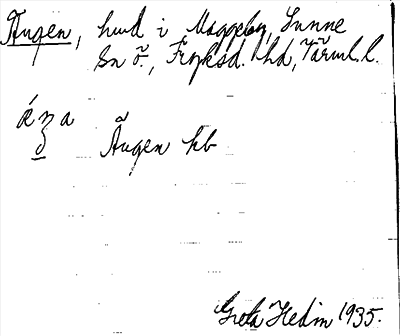 Ängen, hmd i Maggeby, Sunne
sn ö., Fryksd. hd, Värml. l.
Ängen kb
Greta Hedin 1935.